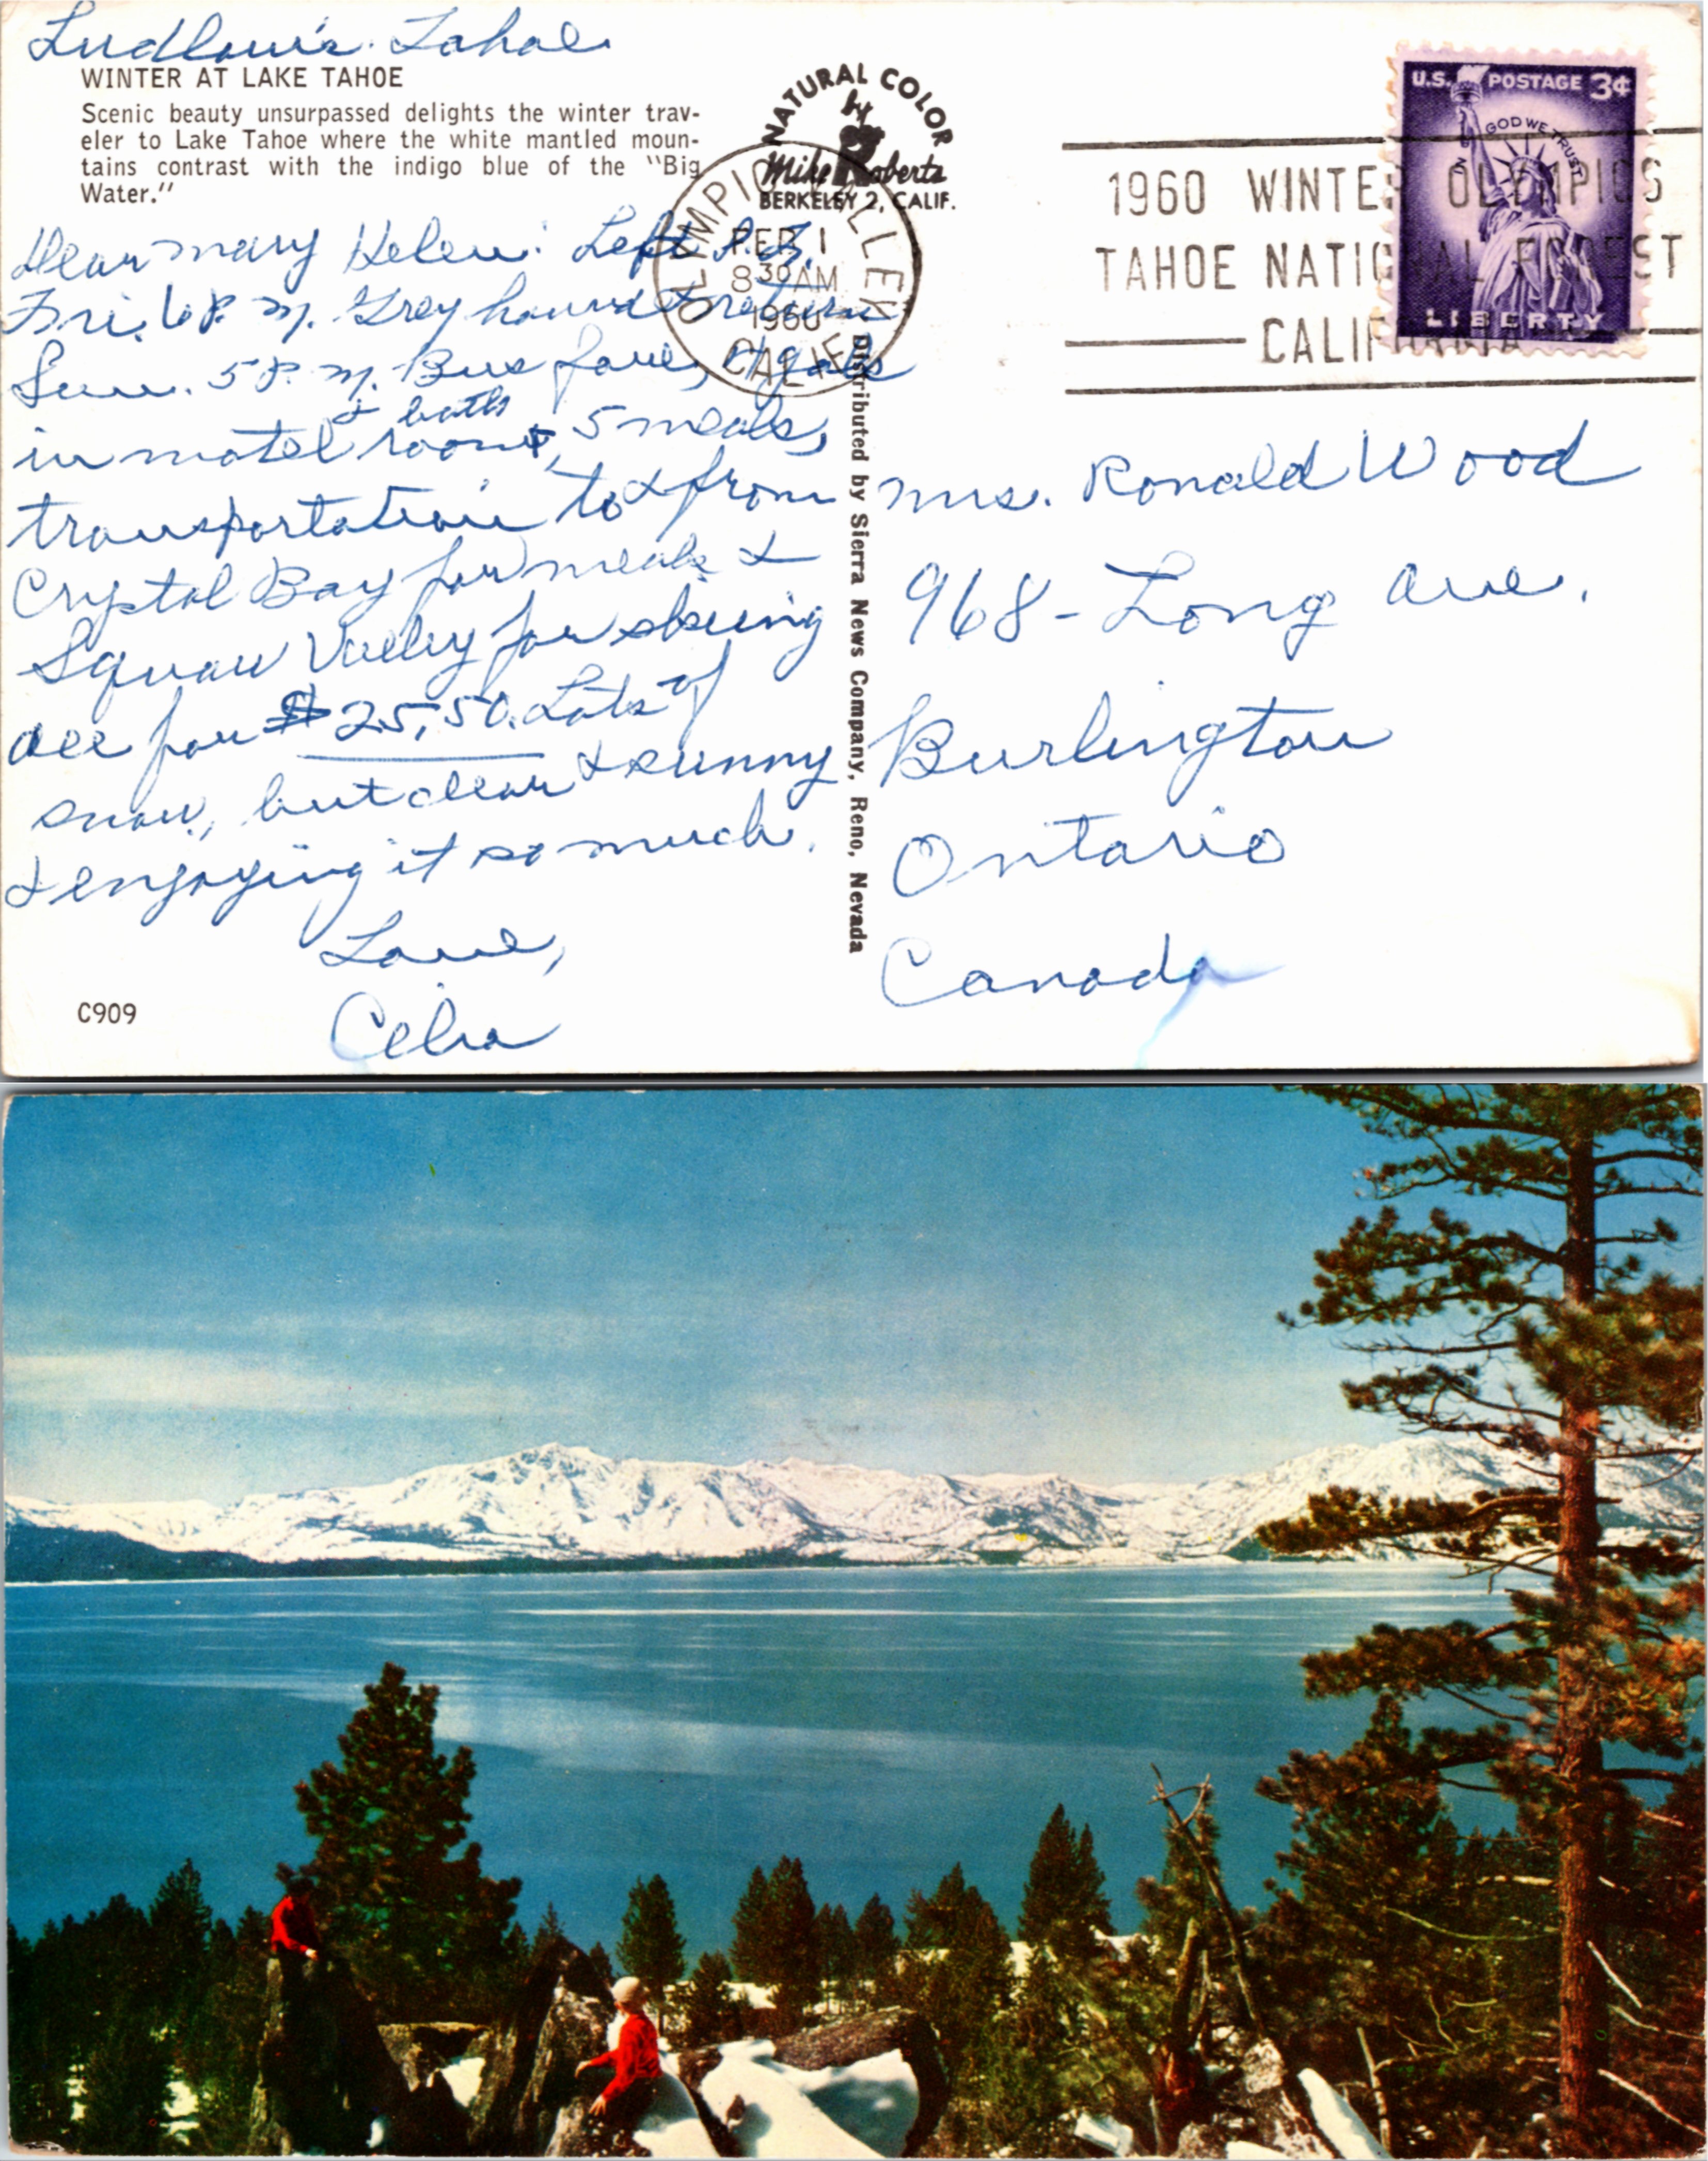 Ludlow's Tahoe
WINTER AT LAKE TAHOE
Scenic beauty unsurpassed delights the winter trav-
eler to Lake Tahoe where the white mantled moun-
tains contrast with the indigo blue of the "Big
Water."
NATURAL COLOR
by
Mike Roberts
BERKELEY 2, CALIF.
OLYMPIC VALLEY
FEB 1
8 30 AM
1960
CALIF
1960 WINTER OLYMPICS
TAHOE NATIONAL FOREST
CALIFORNIA
U.S. POSTAGE 3¢
IN GOD WE TRUST
LIBERTY
Dear Mary Helen: Left S.F.
Fri. 6 P.M. Greyhound & return
Sun. 5 P.M. Bus fare, 4 gals
in motel room & bath, 5 meals,
transportation to & from
Crystal Bay for meals &
Squaw Valley for skiing
all for $25.50. Lots of
snow, but clear & sunny
& enjoying it so much.
Love,
Celia
C909
Distributed by Sierra News Company, Reno, Nevada
Mrs. Ronald Wood
968 - Long Ave.
Burlington
Ontario
Canada